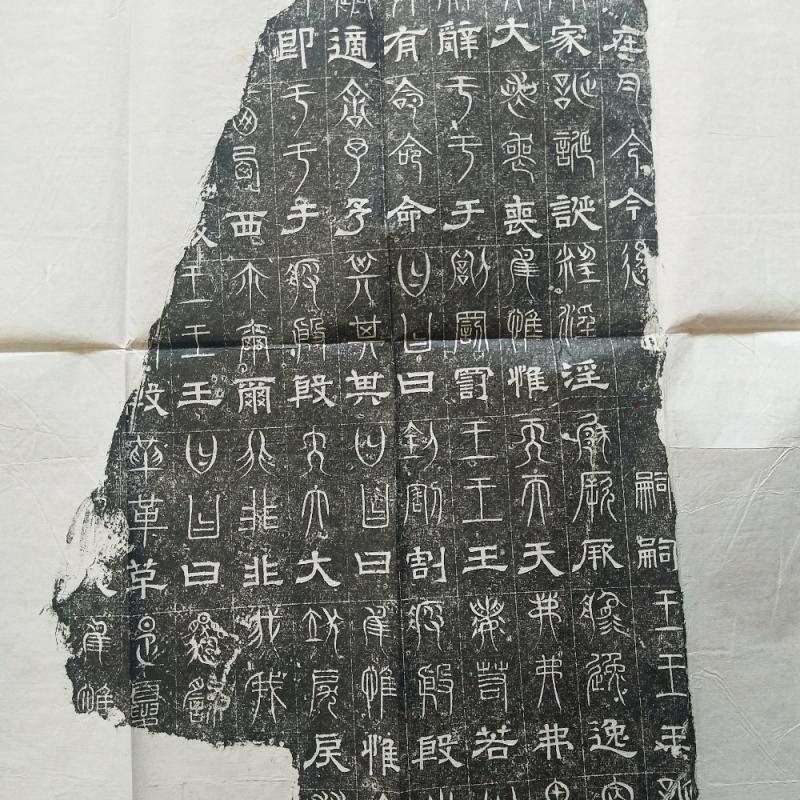 在今今今後嗣嗣王王王
家誕誕誕淫淫淫厥厥厥逸逸逸
大喪喪喪惟惟惟天天天弗弗弗
辭于于于罰罰罰王王王若若若
有命命命曰曰曰割割割殷殷殷
適予予予其其其曰曰曰惟惟惟
即于于于殷殷殷大大大戾戾戾
西西西爾爾爾非非非我我
王王王曰曰曰
殷革革革夏夏
人惟惟